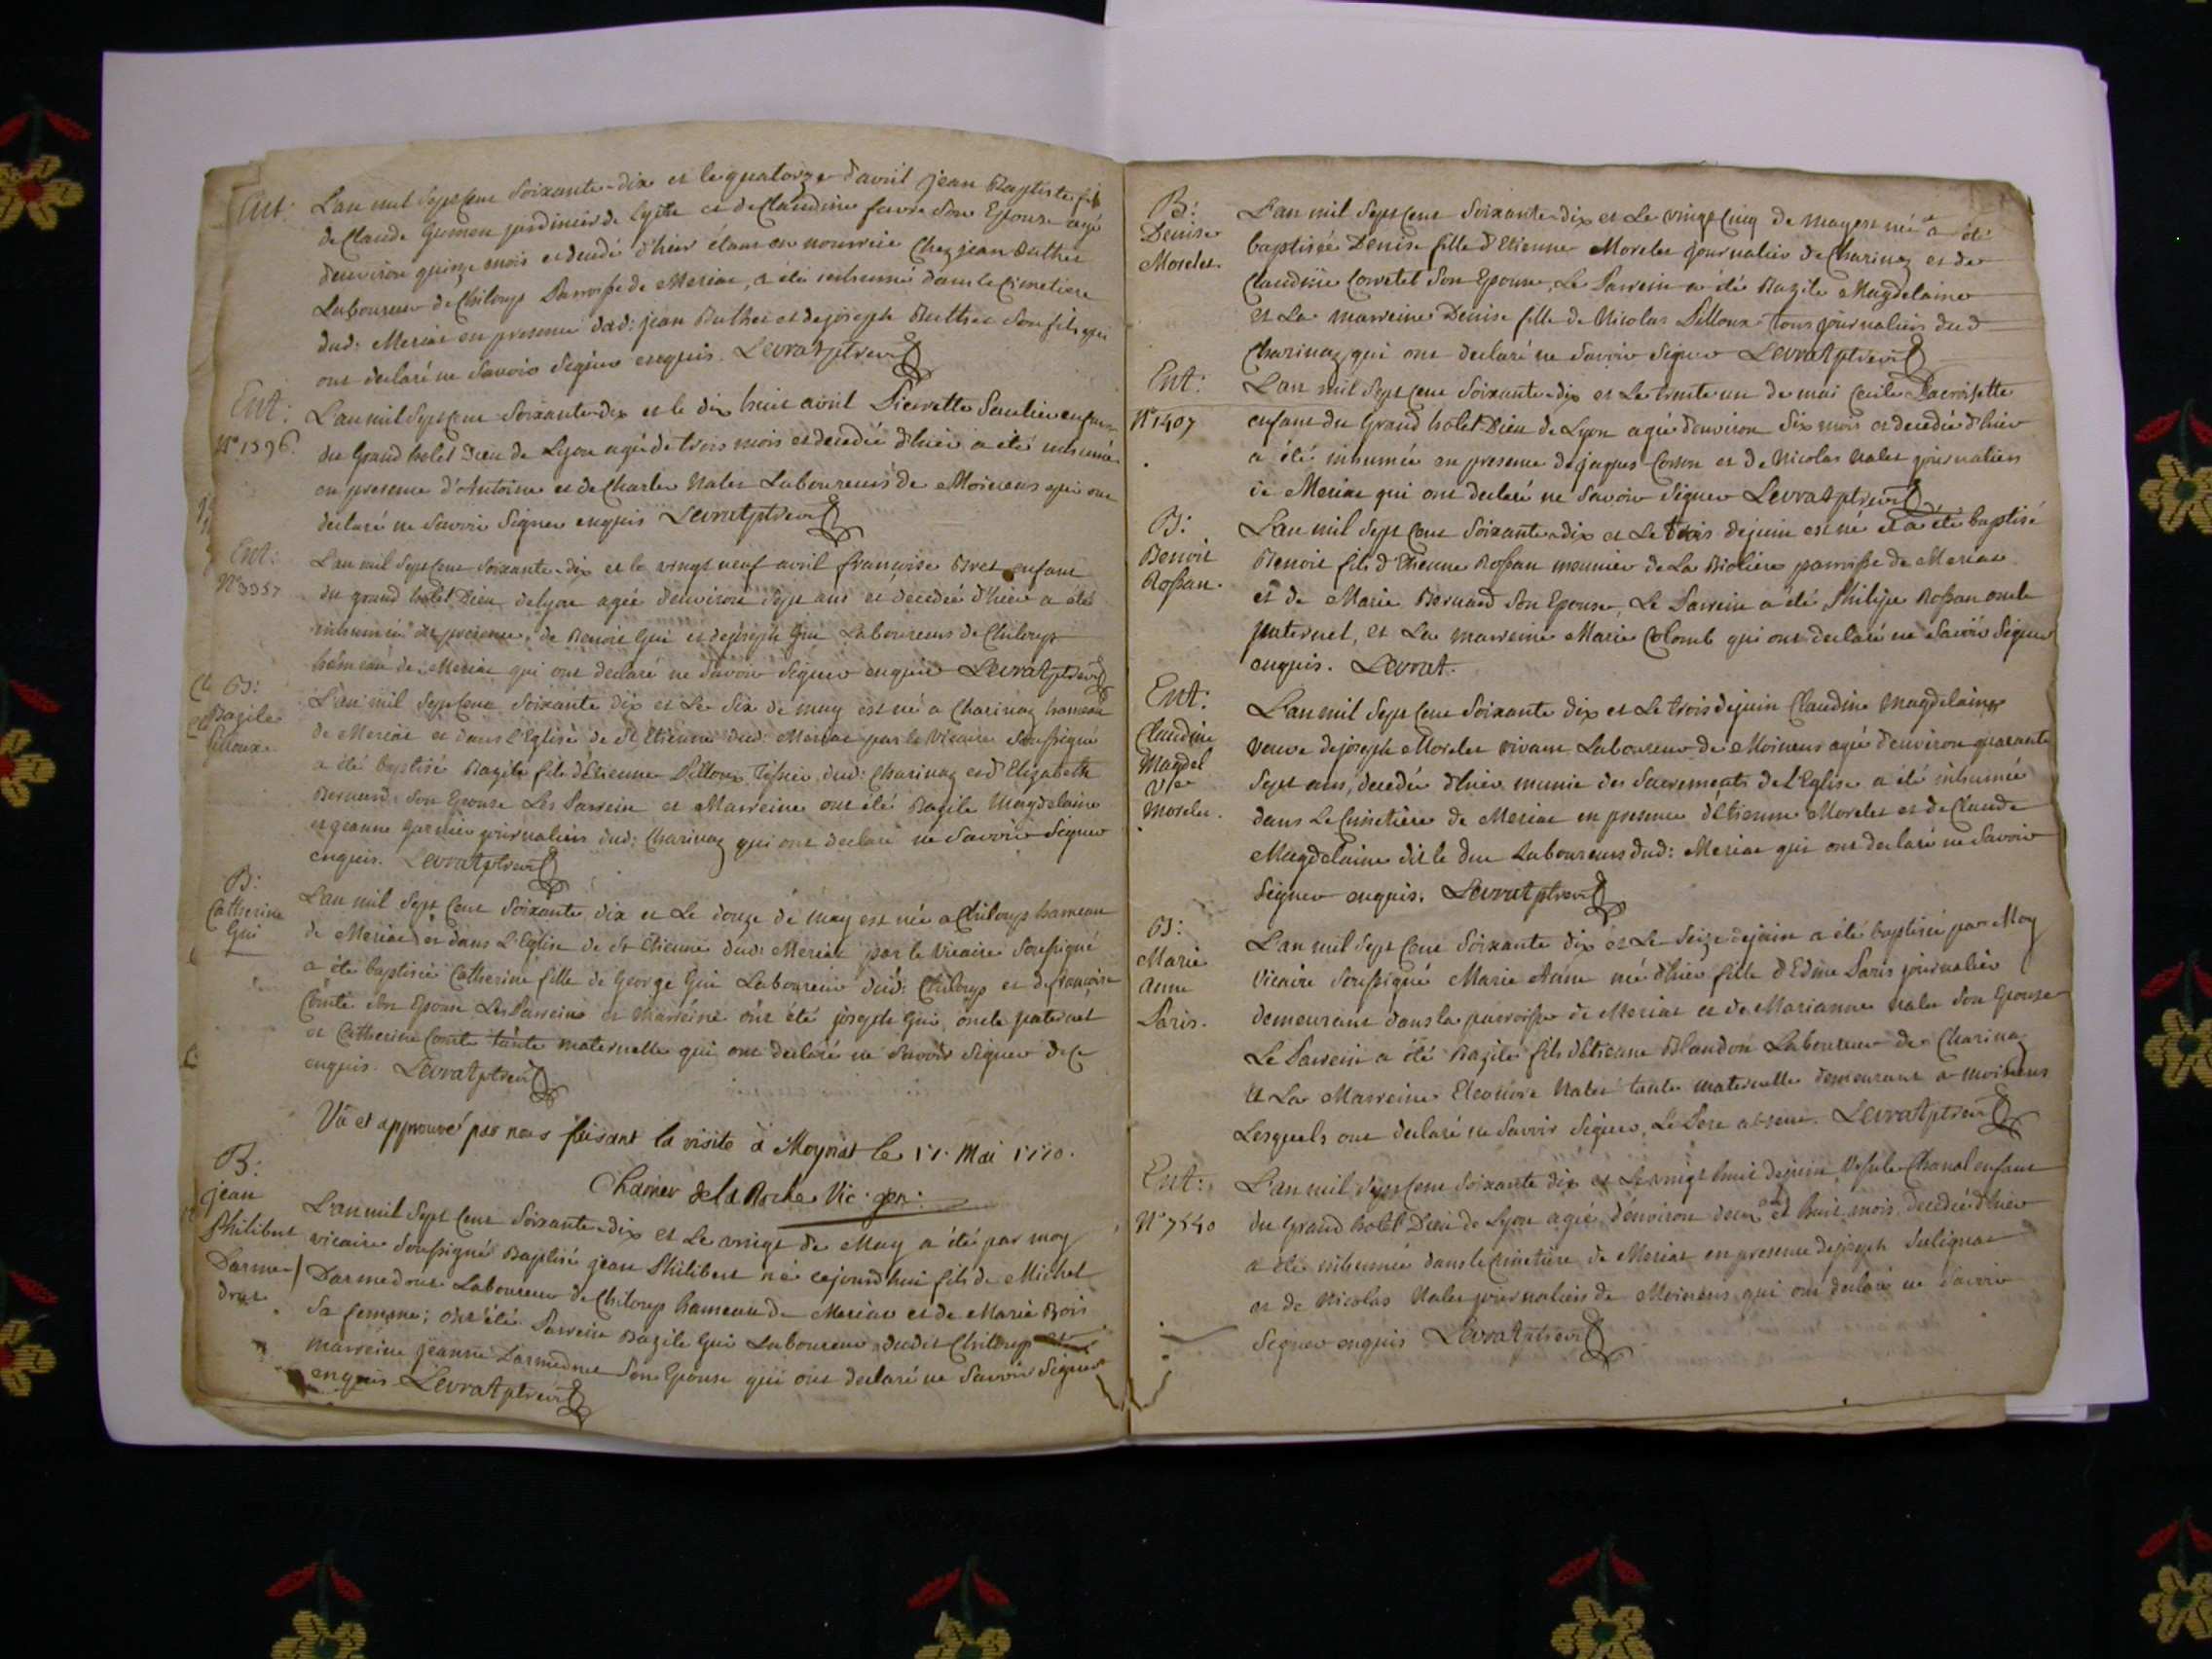 Ent: L'an mil sept cent soixante-dix et le quatorze d'avril jean Baptiste fils
de Claude Gumon jardinier de Lyon et de Claudine favre son Epouse agé
d'environ quinze mois et decedé d'hier étant en nourrice Chez jean Buthet
Laboureur de Chiloup Parroisse de Meriat, a été inhumé dans le Cimetiere
dud: Meriat en presence dud: jean Buthet et de joseph Buthet son fils qui
ont declaré ne savoir signer enquis. Levrat ptre vic
Ent: L'an mil sept cent soixante-dix et le dix huit avril Pierrette enfant
N° 1396. du Grand hotel Dieu de Lyon agée de trois mois et decedée d'hier a été inhumée
en presence d'Antoine et de Charle Nalet Laboureurs de Moinens qui ont
declaré ne savoir signer enquis Levrat ptre vic
Ent: L'an mil sept cent soixante-dix et le vingt neuf avril françoise Bret enfant
N° 3357 du grand hotel Dieu de lyon agée d'environ sept ans et decedée d'hier a été
inhumée en presence, de Benoit Gui et de joseph Gui Laboureurs de Chiloup
hameau de Meriat qui ont declaré ne savoir signer enquis Levrat ptre vic
B: Bazile Lilloux L'an mil sept cent soixante dix et Le six de may est né a Charinaz hameau
de Meriat et dans L'Eglise de St Etienne dud: Meriat par le Vicaire soussigné
a été baptisé Bazile fils d'Etienne Lilloux Tissier dud: Charinaz et d'Elizabeth
Bernard son Epouse Les Parrein et Marreine ont été Bazile Magdelaine
et jeanne Garnier journaliers dud: Charinaz qui ont declaré ne savoir signer
enquis. Levrat ptre vic
B: Catherine Gui L'an mil sept cent soixante dix et Le douze de may est née a Chiloup hameau
de Meriat et dans L'Eglise de St Etienne dud: Meriat par le Vicaire soussigné
a été baptisée Catherine fille de George Gui Laboureur dud: Chiloup et de françoise
Comte son Epouse Les Parrein et Marreine ont été joseph Gui, oncle paternel
et Catherine Comte tante maternelle qui ont declaré ne savoir signer de ce
enquis. Levrat ptre vic
Vu et approuvé par nous faisant la visite à Meyriat le 17. Mai 1770.
de la Roche Vic: gen:
B: jean Philibert Darmedrus L'an mil sept cent soixante-dix et Le vingt de May a été par moy
vicaire soussigné Baptisé jean Philibert né cejourd'hui fils de Michel
Laboureur de Chiloup hameau de Meriat et de Marie Bois
sa femme; ont été Parrein Bazile Gui Laboureur dudit Chiloup
marreine jeanne son Epouse qui ont declaré ne savoir signer
enquis Levrat ptre vic
B: Denise Morelet. L'an mil sept cent soixante-dix et Le vingt cinq de may est née et a été
baptisée Denise fille d'Etienne Morelet journalier de Charinaz et de
Claudine Corretel son Epouse, Le Parrein a été Bazile Magdelaine
et La marreine Denise fille de Nicolas Lilloux tous journaliers dud
Charinaz, qui ont declaré ne savoir signer Levrat ptre vic
Ent: L'an mil sept cent soixante-dix et Le trente un de mai Cecile
N° 1407 enfant du Grand hotel Dieu de Lyon agée d'environ six mois et decedée d'hier
a été inhumée en presence de jaques et de Nicolas Nalet journaliers
de Meriat qui ont declaré ne savoir signer Levrat ptre vic
B: Benoit Rossan. L'an mil sept cent soixante-dix et Le trois de juin est né et a été baptisé
Benoit fils d'Etienne Rossan meunier de La Bioliere parroisse de Meriat
et de Marie Bernard son Epouse, Le Parrein a été Philipe Rossan oncle
paternel, et La marreine Marie Colomb qui ont declaré ne savoir signer
enquis. Levrat.
Ent: Claudine Magdel Vve Morelet. L'an mil sept cent soixante dix et Le trois de juin Claudine Magdelaine
veuve de joseph Morelet vivant Laboureur de Moinens agée d'environ quarante
sept ans, decedée d'hier munie des sacrements de L'Eglise a été inhumée
dans Le Cimetiere de Meriat en presence d'Etienne Morelet et de Claude
Magdelaine dit le duc Laboureurs dud: Meriat qui ont declaré ne savoir
signer enquis. Levrat ptre vic
B: Marie Anne Paris. L'an mil sept cent soixante dix et Le seize de juin a été baptisée par Moy
Vicaire soussigné Marie Anne née d'hier fille d'Edme Paris journalier
demeurant dans la parroisse de Meriat et de Marianne Nalet son Epouse
Le Parrein a été Bazile fils d'Etienne Blandon Laboureur de Charinaz
et La Marreine Eleonore Nalet tante maternelle demeurant a moinens
Lesquels ont declaré ne savoir signer, Le Pere absent. Levrat ptre vic
Ent: L'an mil sept cent soixante dix et Le vingt huit de juin Ursule Chanal enfant
N° 7540 du grand hotel Dieu de Lyon agée, d'environ deux ans et huit mois, decedée d'hier
a été inhumée dans le Cimetiere de Meriat en presence de joseph Seilignat
et de Nicolas Nalet journaliers de Moinens, qui ont declaré ne savoir
signer enquis Levrat ptre vic